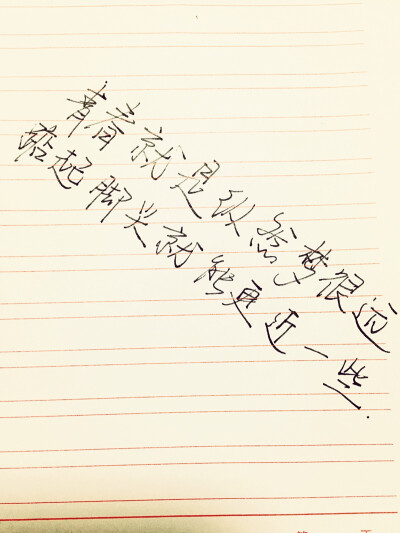 青春就是纵然梦很远
踮起脚尖就能更近一些.